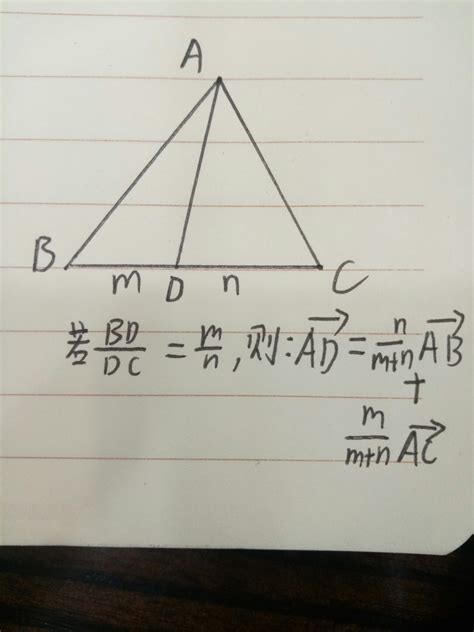 A
B C
m D n
若 BD/DC = m/n, 则: \overrightarrow{AD} = n/(m+n) \overrightarrow{AB}
+
m/(m+n) \overrightarrow{AC}